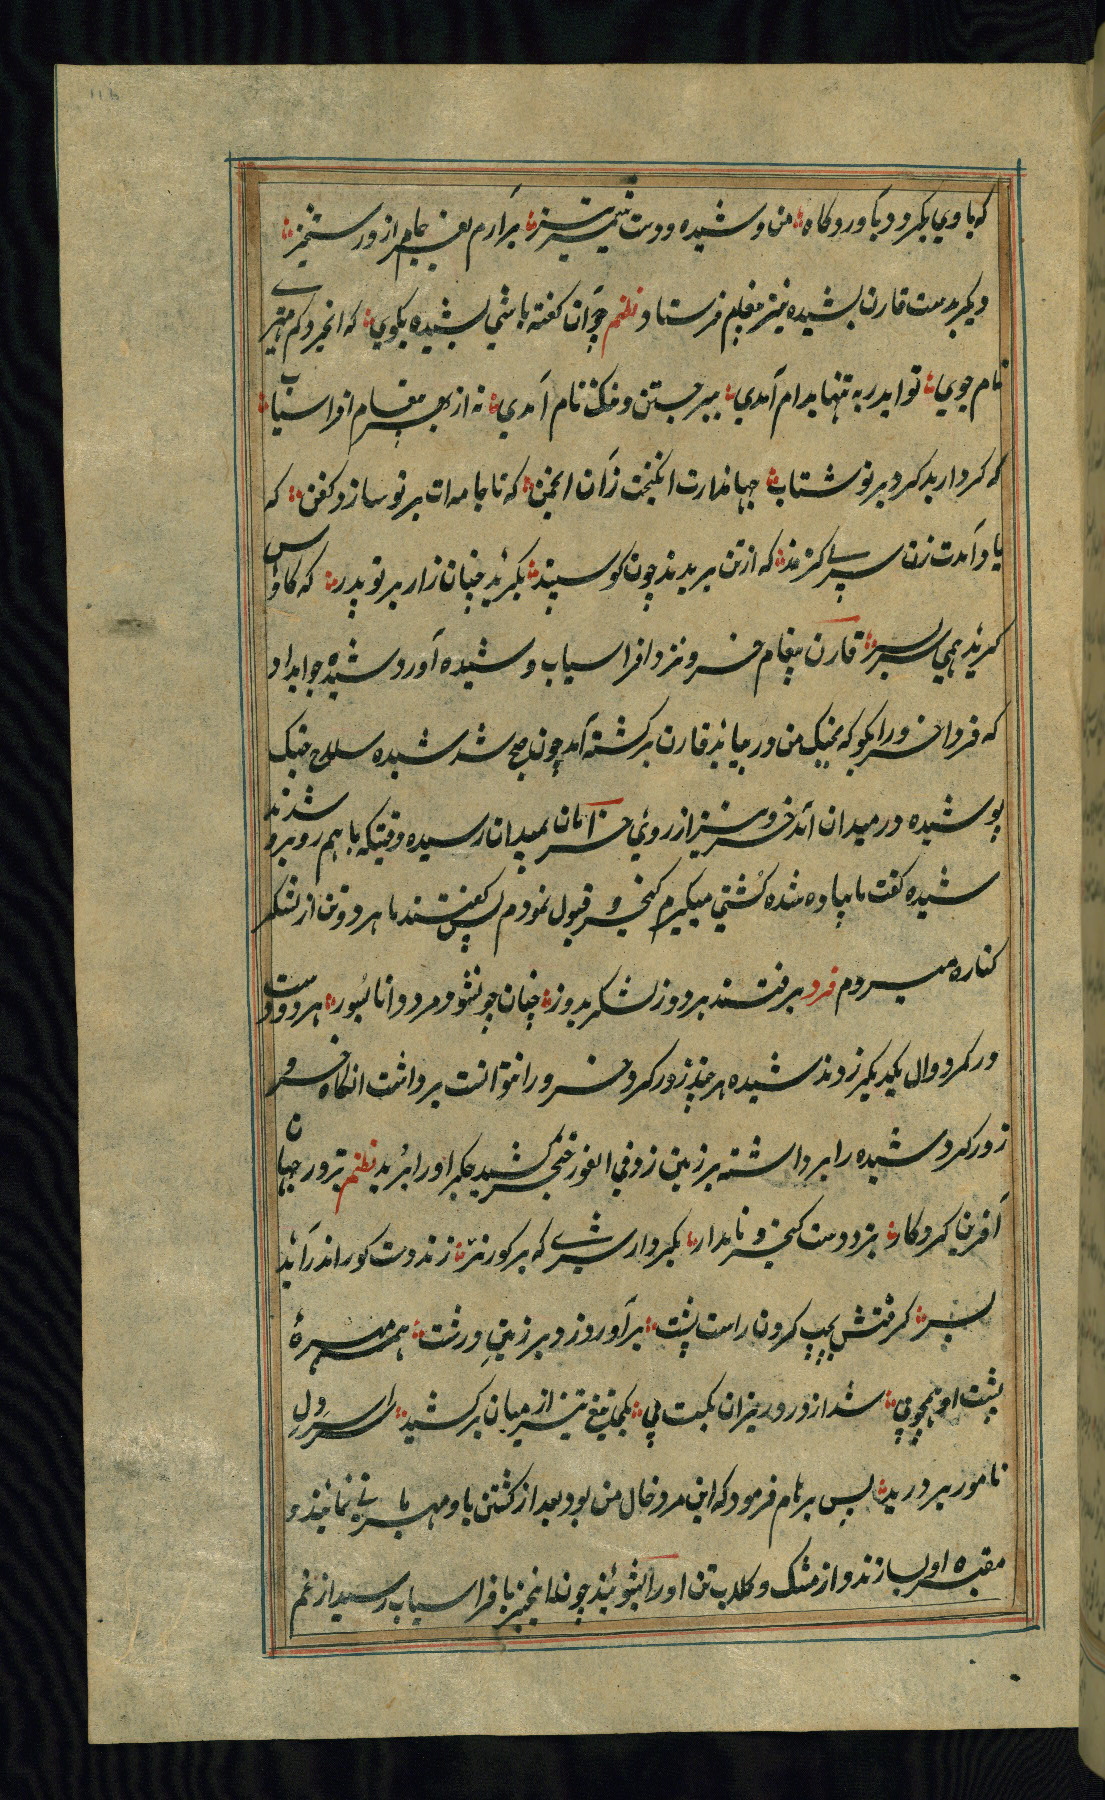 که با وی بگردد بآوردگاه من و شیده و دشت شمشیر تیز برآرم بفرجام ازو رستخیز
دیگر بدست قارن بشیده نیز پیغام فرستاد نظم چو آن گفته باشی بشیده بگوی که ای کم خرد مهتر
نام جوی تو ایدر به تنها بدام آمدی نه بر جستن و ننگ و نام آمدی نه از بهر پیغام افراسیاب
که کردار بد کرد بر تو شتاب جهاندارت انگیخت زان انجمن که تا جامه‌ات بر تو سازد کفن که
یاد آمدت زن سر بی گزند که از تن بریدند چون گوسپند بگرید چنان زار بر تو پدر که کاوس
گرید همی بر پسر قارن پیغام خسرو نزد افراسیاب و شیده آورد شیده جواب داد
که فردا خسرو را بگو که بجنگ من در بیاید قارن برگشته آمد چون صبح شد شیده سلاح جنگ
پوشیده در میدان آمد خسرو نیز از روی خرامان بمیدان رسیده وقتیکه با هم روبرو شدند
شیده گفت ما پیاده شده کشتی میگیرم کیخسرو قبول نمودم پس گفتند ما هر دو تن از لشکر
کناره میرویم فرد برفتند هر دو ز لشکر بدور چنان چون شود مرد دانا بسور هر دو دست
در کمر دوال یکدیگر زدند شیده هر چند زور کرد خسرو را نتوانست برداشت انگاه خسرو
زور کرد شیده را برداشته بر زمین زد فی الفور خنجر کشید جگر او را برید نظم بزور جهان
آفرین کردگار بزد دست کیخسرو نامدار بکردار شیری که بر گور نر زند دست گور اندر آید
بسر گرفتش بچپ گردن راست پشت برآورد و زد بر زمین درشت همه مهرهٔ
پشت او همچو نی شد از درد ریزان بگسست پی یکی تیغ تیز از میان برکشید سراسر دل
نامور بر درید پس برهام فرمود که این مرد خال من بود بعد از کشتن باو مهربانی نمایند و
مقبره او بسازند و از مشک و گلاب تن او را بشویند چون این خبر بافراسیاب رسید از غم